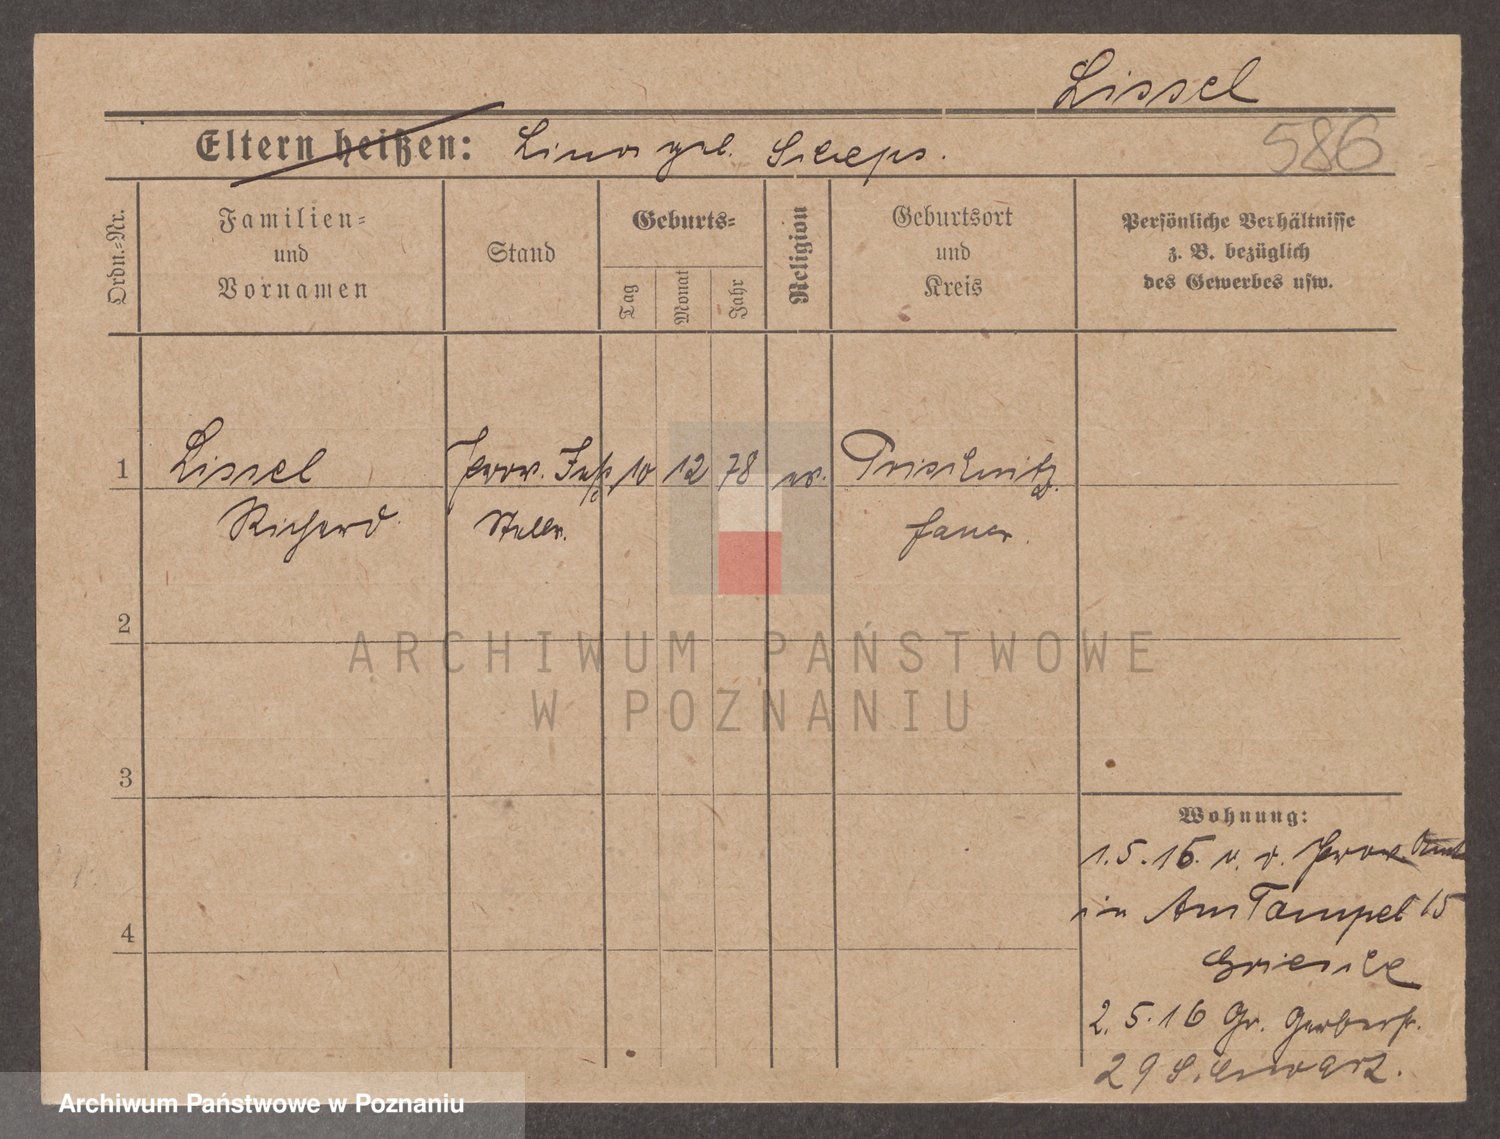 Lissel
Eltern heißen: Lina geb.
586
Ordn.=Nr.
Familien=
und
Vornamen
Stand
Geburts=
Tag
Monat
Jahr
Religion
Geburtsort
und
Kreis
Persönliche Verhältnisse
z. B. bezüglich
des Gewerbes usw.
1
Lissel
Richard
Prov. Insp.
Stellv.
10
12
78
ev.
Jauer.
2
3
4
Wohnung:
1.5.16. v. d. Prov. Amt
in Am Tempel 15
2.5.16 Gr. Gerberstr.
29 Schwarz.
ARCHIWUM PAŃSTWOWE
W POZNANIU
Archiwum Państwowe w Poznaniu